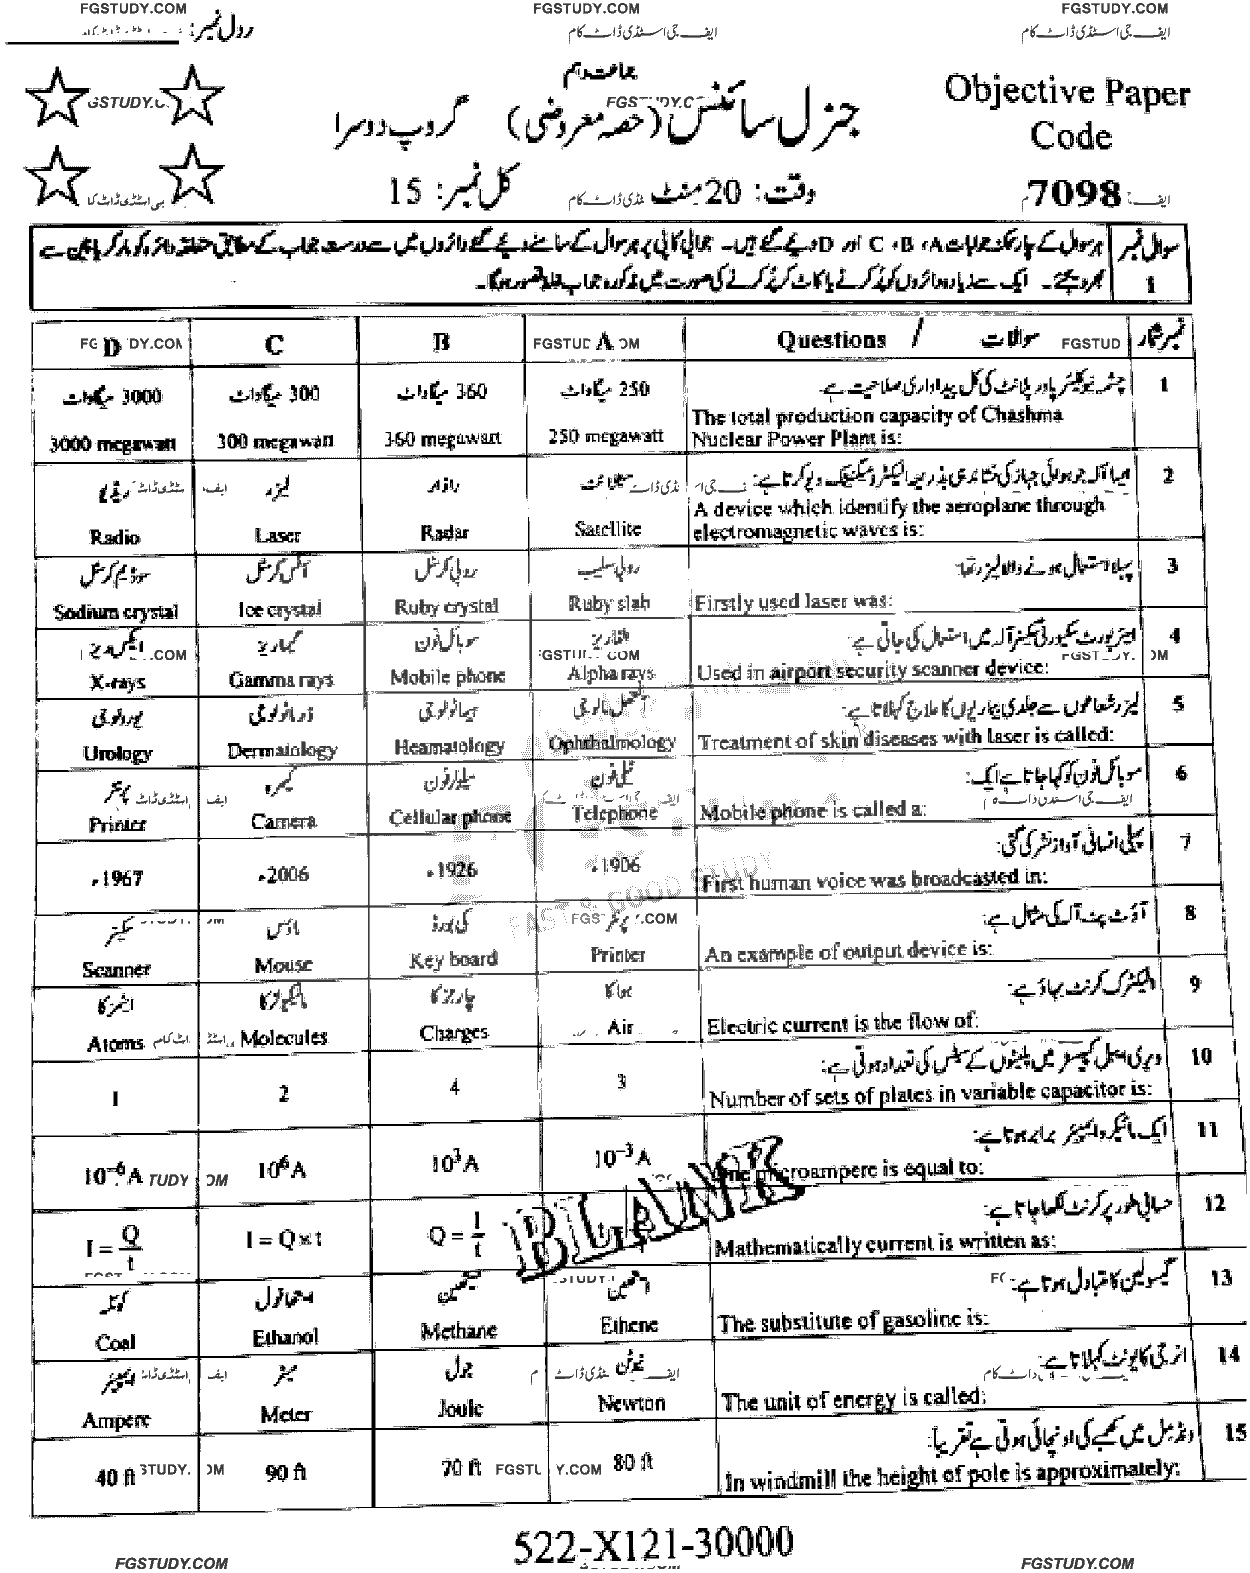 FGSTUDY.COM FGSTUDY.COM FGSTUDY.COM
رول نمبر: ایف جی اسٹڈی ڈاٹ کام ایف جی اسٹڈی ڈاٹ کام
جماعت دہم
جنرل سائنس (حصہ معروضی) گروپ دوسرا
Objective Paper
Code
7098
وقت: 20 منٹ کل نمبر: 15
سوال نمبر 1
ہر سوال کے چار ممکنہ جوابات A، B، C اور D دیے گئے ہیں۔ جوابی کاپی پر ہر سوال کے سامنے دیے گئے دائروں میں سے درست جواب کے مطابق متعلقہ دائرہ کو مارکر یا پین سے
بھر دیجئے۔ ایک سے زیادہ دائروں کو پُر کرنے یا کاٹ کر پُر کرنے کی صورت میں مذکورہ جواب غلط تصور ہوگا۔
نمبر شمار سوالات / Questions A B C D
1 چشمہ نیوکلیئر پاور پلانٹ کی کل پیداواری صلاحیت ہے:
The total production capacity of Chashma
Nuclear Power Plant is:
250 میگاواٹ 360 میگاواٹ 300 میگاواٹ 3000 میگاواٹ
250 megawatt 360 megawatt 300 megawatt 3000 megawatt
2 ایسا آلہ جو ہوائی جہاز کی نشاندہی بذریعہ الیکٹرومیگنیٹک ویو کرتا ہے:
A device which identify the aeroplane through
electromagnetic waves is:
سیٹلائٹ راڈار لیزر ریڈیو
Satellite Radar Laser Radio
3 پہلا استعمال ہونے والا لیزر تھا:
Firstly used laser was:
روبی سلیب روبی کرسٹل آئس کرسٹل سوڈیم کرسٹل
Ruby slab Ruby crystal Ice crystal Sodium crystal
4 ایئرپورٹ سکیورٹی سکینر آلہ میں استعمال کی جاتی ہے:
Used in airport security scanner device:
الفا ریز موبائل فون گیما ریز ایکس ریز
Alpha rays Mobile phone Gamma rays X-rays
5 لیزر شعاعوں سے جلدی بیماریوں کا علاج کہلاتا ہے:
Treatment of skin diseases with laser is called:
ہیماٹولوجی ڈرماٹولوجی یورولوجی
Ophthalmology Heamatology Dermatology Urology
6 موبائل فون کو کہا جاتا ہے ایک:
Mobile phone is called a:
ٹیلی فون سیلولر فون کیمرہ پرنٹر
Telephone Cellular phone Camera Printer
7 پہلی انسانی آواز نشر کی گئی:
First human voice was broadcasted in:
1906ء 1926ء 2006ء 1967ء
8 آؤٹ پٹ آلہ کی مثال ہے:
An example of output device is:
پرنٹر کی بورڈ ماؤس سکینر
Printer Key board Mouse Scanner
9 الیکٹرک کرنٹ بہاؤ ہے:
Electric current is the flow of:
ہوا کا چارجز کا مالیکیولز کا ایٹمز کا
Air Charges Molecules Atoms
10 ویری ایبل کپیسٹر میں پلیٹوں کے سیٹس کی تعداد ہوتی ہے:
Number of sets of plates in variable capacitor is:
3 4 2 1
11 ایک مائیکرو ایمپیئر برابر ہوتا ہے:
One microampere is equal to:
10⁻³A 10³A 10⁶A 10⁻⁶A
12 حسابی طور پر کرنٹ لکھا جاتا ہے:
Mathematically current is written as:
Q = I/t I = Q × t I = Q/t
BLANK
13 گیسولین کا متبادل ہوتا ہے:
The substitute of gasoline is:
ایتھین میتھین ایتھانول کوئلہ
Ethene Methane Ethanol Coal
14 انرجی کا یونٹ کہلاتا ہے:
The unit of energy is called:
نیوٹن جول میٹر ایمپیئر
Newton Joule Meter Ampere
15 ونڈ مل میں کھمبے کی اونچائی ہوتی ہے تقریباً:
In windmill the height of pole is approximately:
80 ft 70 ft 90 ft 40 ft
522-X121-30000
FGSTUDY.COM FGSTUDY.COM